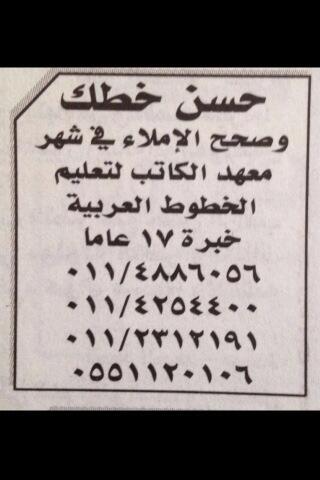 حسن خطك
وصحح الإملاء في شهر
معهد الكاتب لتعليم
الخطوط العربية
خبرة ١٧ عاما
٠١١/٤٨٨٦٠٥٦
٠١١/٤٢٥٤٤٠٠
٠١١/٢٣١٢١٩١
٠٥٥١١٢٠١٠٦